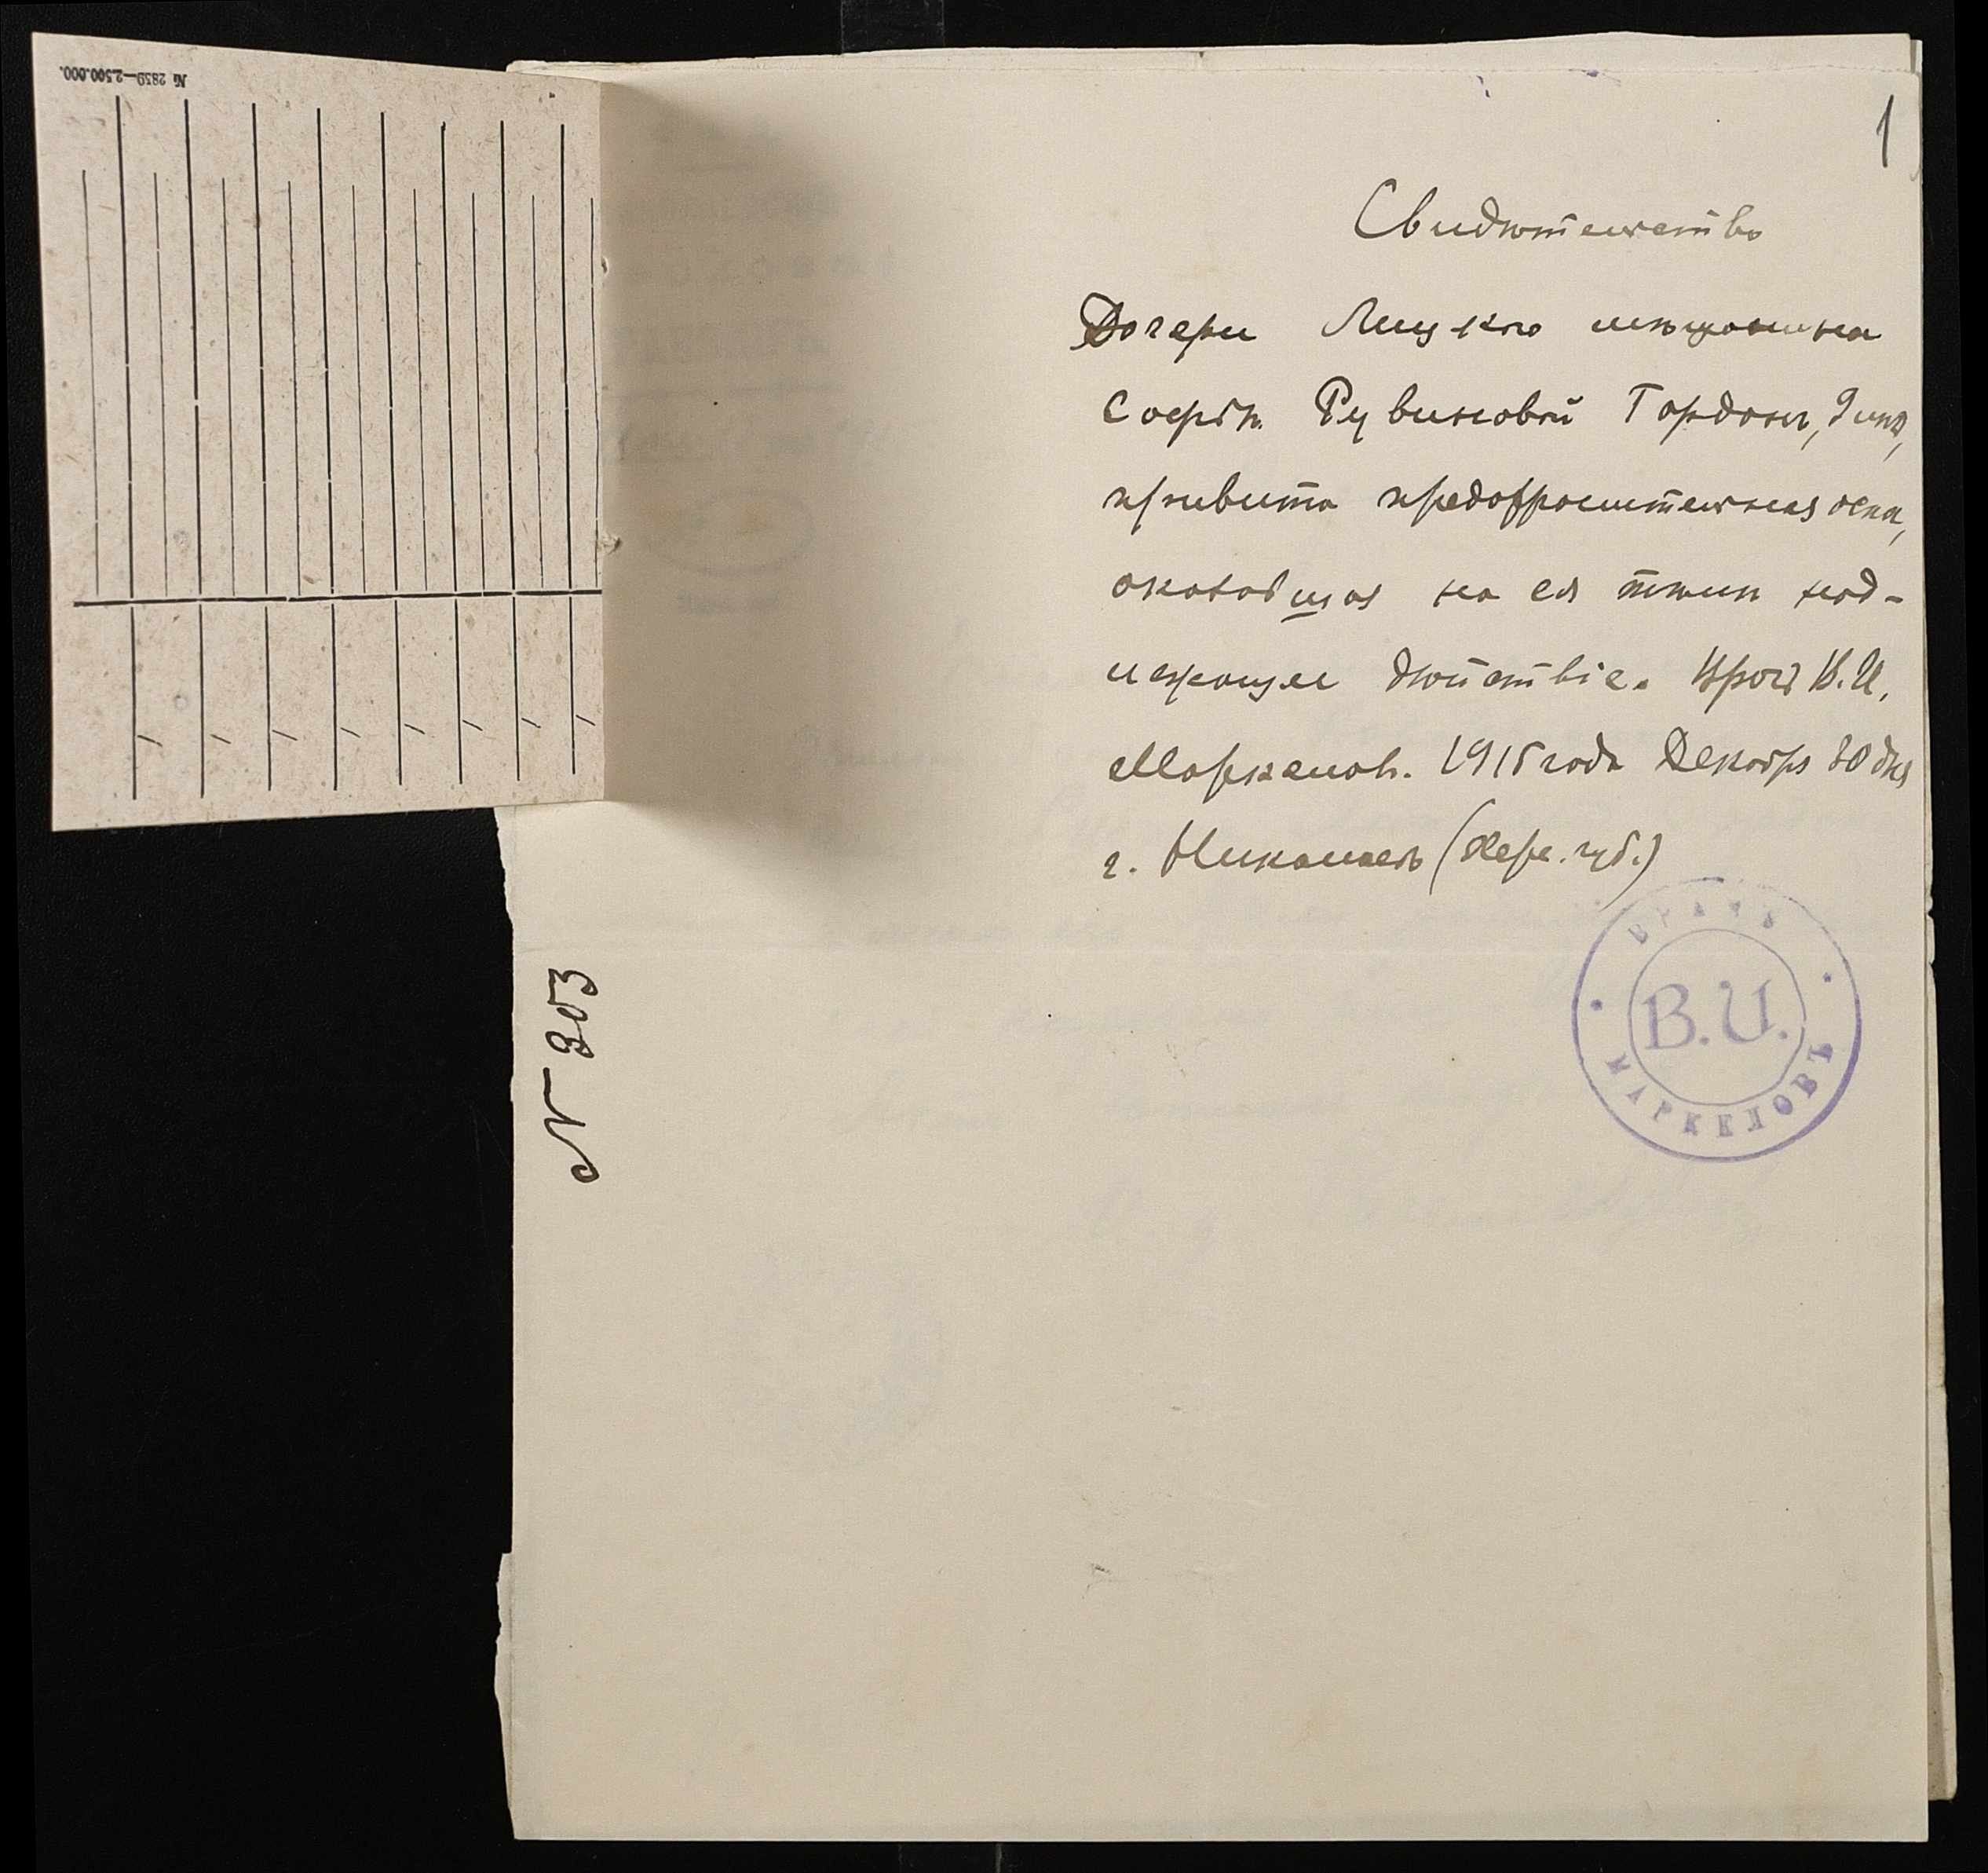 № 2859—2.500.000.
1
Свидѣтельство
Дочери Луцкого мѣщанина
Софіи Рувиновой Гордонъ, 9 лѣтъ,
привита предохранительная оспа,
оказавшая на ея тѣлѣ над-
лежащее дѣйствіе. Врачъ В. И.
Маркеловъ. 1915 года Декабря 30 дня
г. Николаевъ (Херс. губ.)
ВРАЧЪ
В. И.
МАРКЕЛОВЪ
N 303